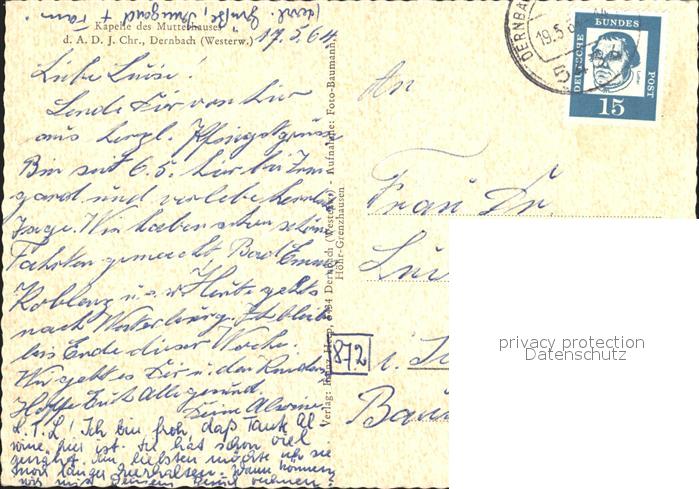 Herzl. Grüße, Irmgard + Fam.
Kapelle des Mutterhauses
d. A. D. J. Chr., Dernbach (Westerw.)
17.5.64
Liebe Luise!
Sende Dir von hier
aus herzl. Pfingstgrüße
Bin seit 6.5. hier bei Irm
gard und verlebe herrliche
Tage. Wir haben schon schöne
Fahrten gemacht, Bad Ems
Koblenz u.s.w. Heute gehts
nach Westerburg. Ich bleibe
bis Ende dieser Woche.
Wie geht es Dir u. den Kindern
Hoffe Euch alle gesund.
Deine Alwine
L. T. L! Ich bin froh, daß Tante Al
wine hier ist. Sie hat schon viel
am liebsten möchte ich sie
noch länger hierhalten. Wann können
wir mit Deinem Besuch rechnen?
Verlag: Hep, 5434 Dernbach (Westerw.) - Aufnahme: Foto-Baumann,
Höhr-Grenzhausen
DERNBA
19.5.6
DEUTSCHE
BUNDES
POST
15
An
Frau Dr.
Lui
872
privacy protection
Datenschutz